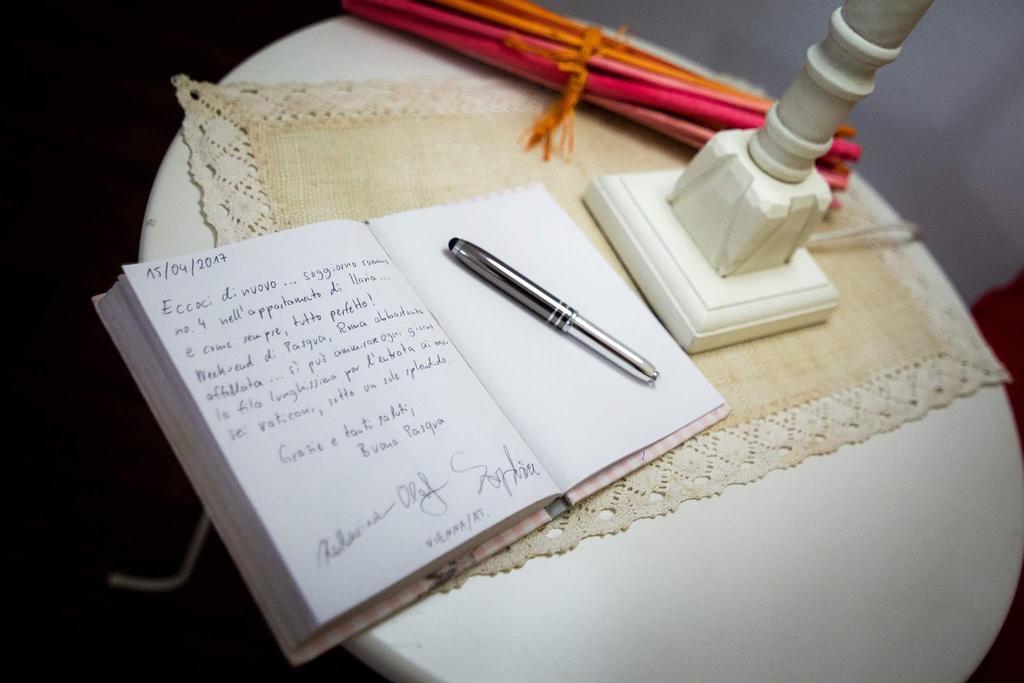 15/04/2017
Eccoci di nuovo ... soggiorno romano
no. 4 nell'appartamento di Ilaria...
e come sempre, tutto perfetto!
Weekend di Pasqua, Roma abbastanza
affollata ... si può ammirare ogni giorno
la fila lunghissima per l'entrata ai mu.
sei vaticani, sotto un sole splendido.
Grazie e tanti saluti,
Buona Pasqua
Olaf Sophia
VIENNA/AT.